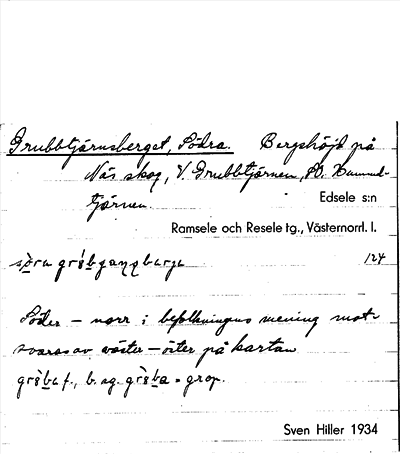 Grubbtjärnsberget, Södra. Bergshöjd på
Näs skog, V. Grubbtjärnen,
tjärnen.
Edsele s:n
Ramsele och Resele tg., Västernorrl. l.
124
Söder – norr i befolkningens mening mot-
svaras av väster – öster på kartan
f., b. sg. = grop.
Sven Hiller 1934